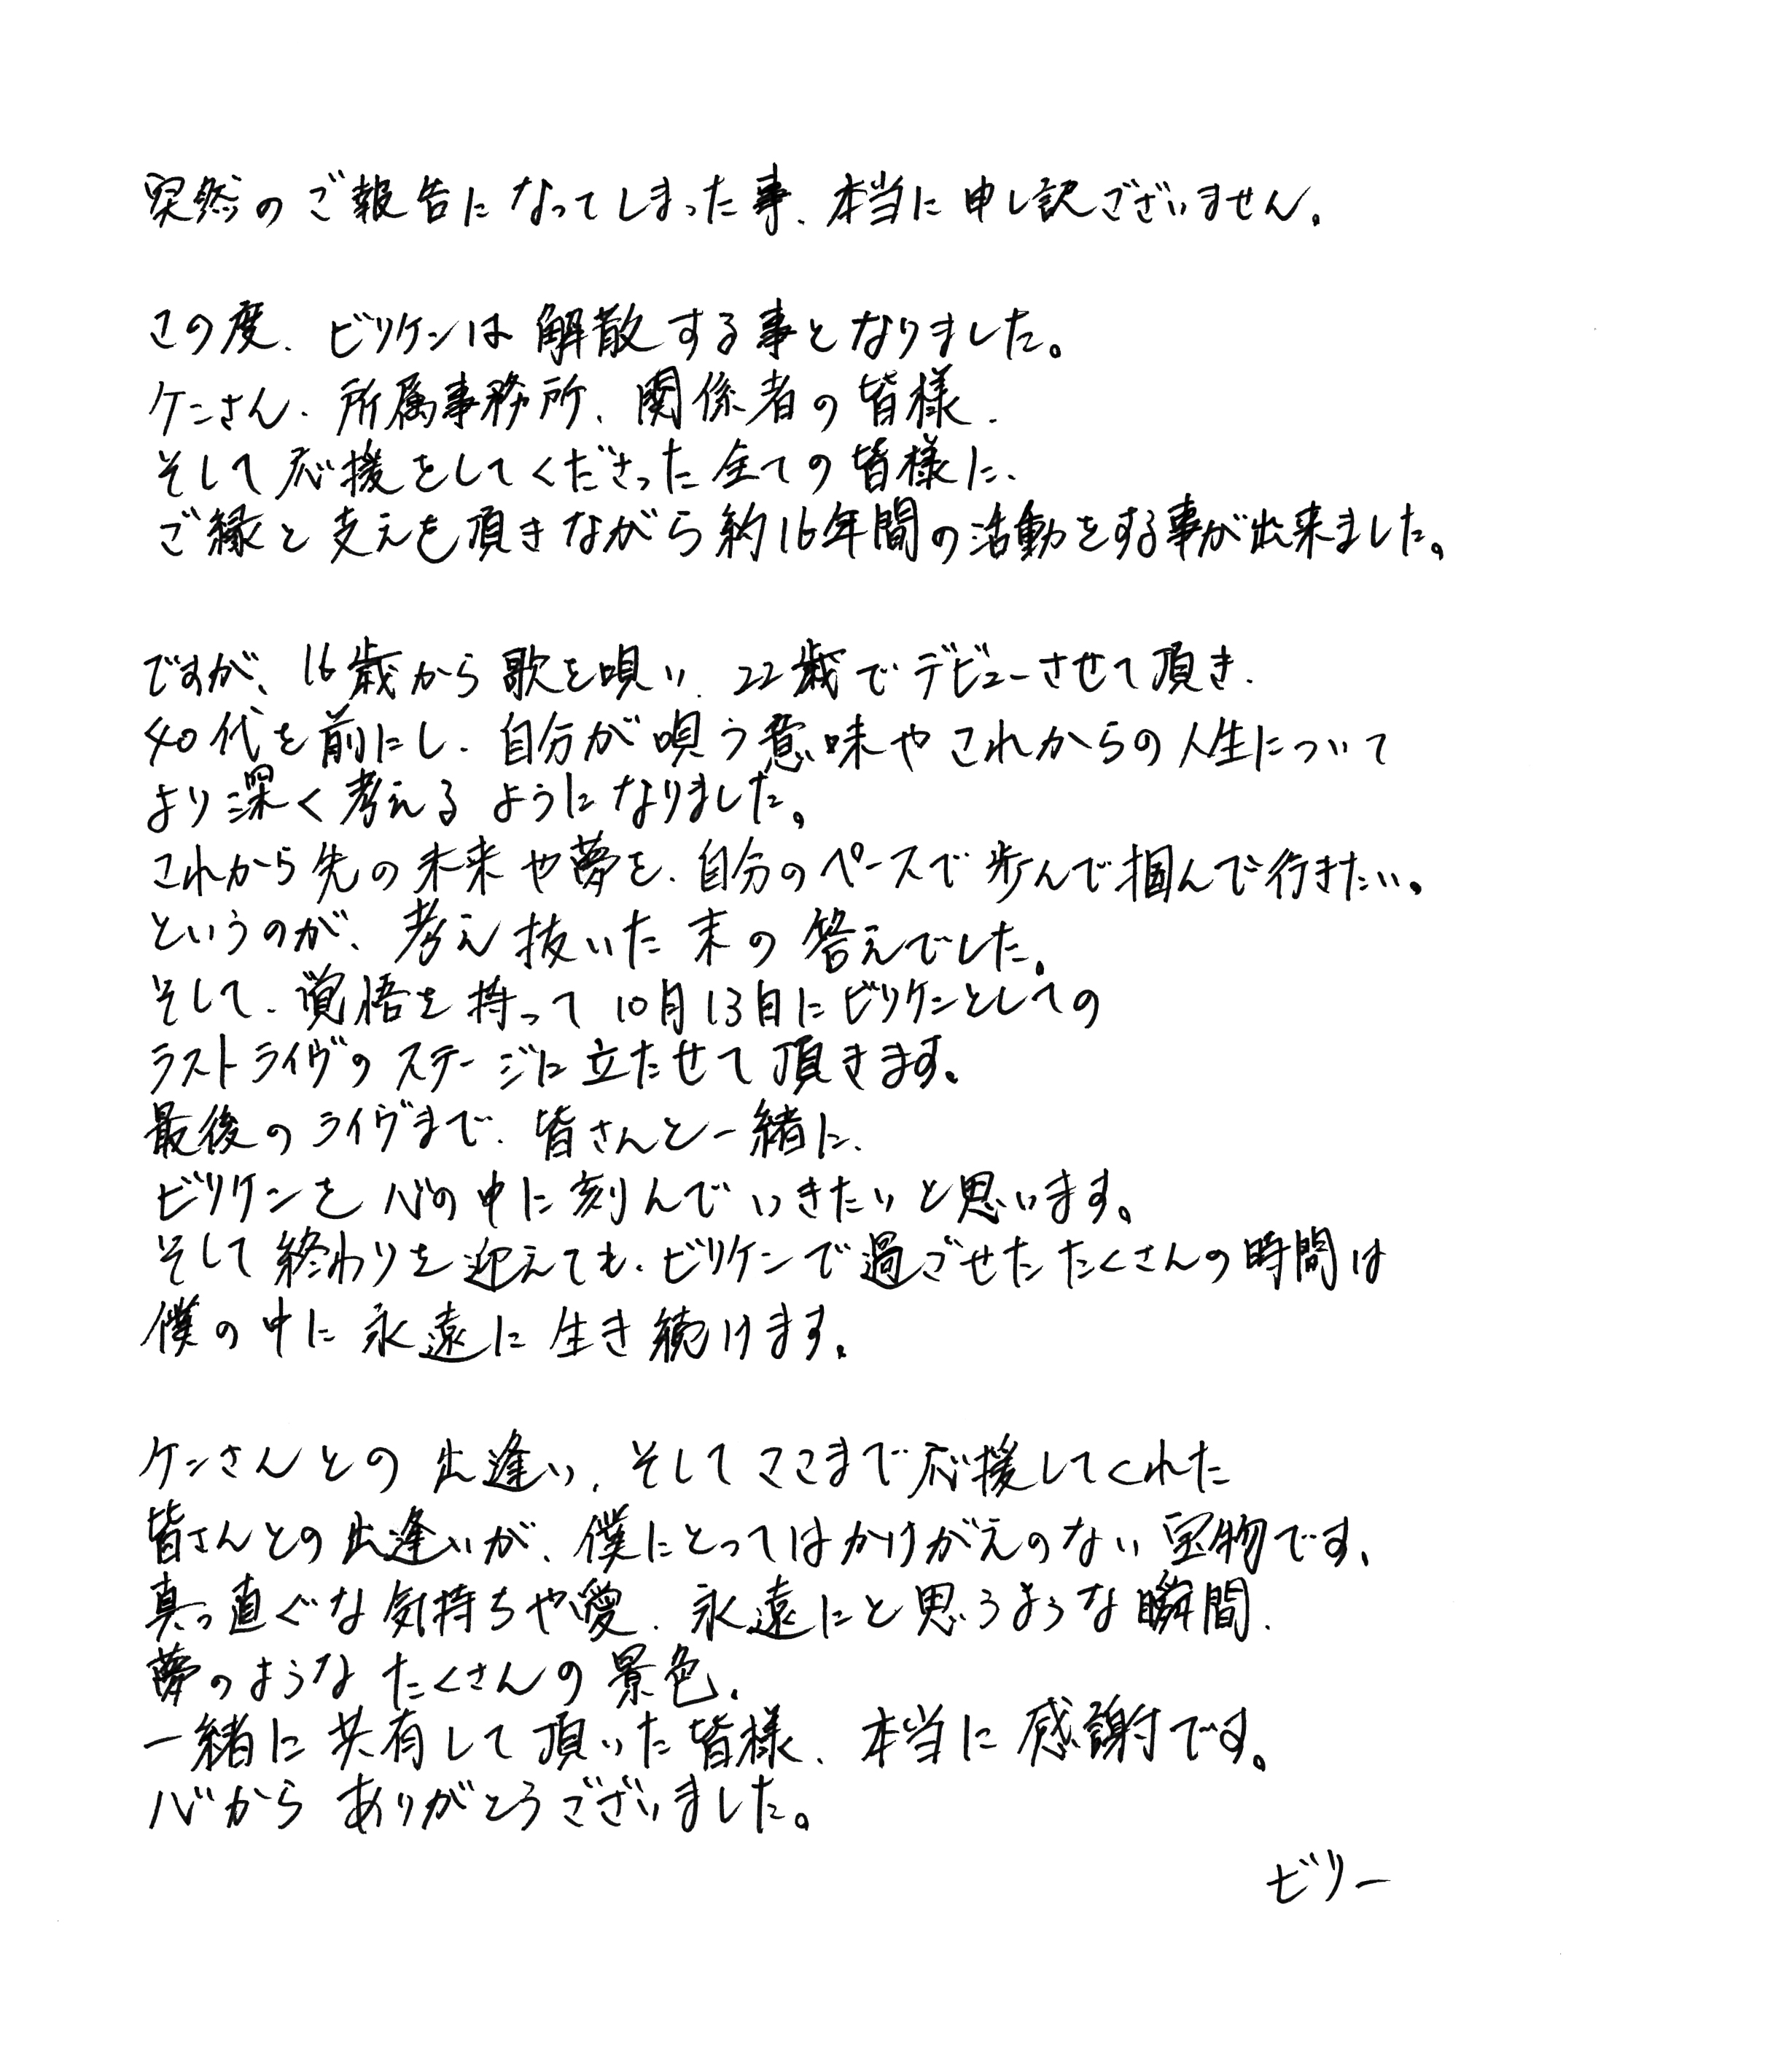 突然のご報告になってしまった事、本当に申し訳ございません。
この度、ビリケンは解散する事となりました。
ケンさん、所属事務所、関係者の皆様、
そして応援をしてくださった全ての皆様に、
ご縁と支えを頂きながら約16年間の活動をする事が出来ました。
ですが、16歳から歌を唄い、22歳でデビューさせて頂き、
40代を前にし、自分が唄う意味やこれからの人生について
より深く考えるようになりました。
これから先の未来や夢を、自分のペースで歩んで掴んで行きたい。
というのが、考え抜いた末の答えでした。
そして、覚悟を持って10月13日にビリケンとしての
ラストライヴのステージに立たせて頂きます。
最後のライヴまで、皆さんと一緒に、
ビリケンを心の中に刻んでいきたいと思います。
そして終わりを迎えても、ビリケンで過ごせたたくさんの時間は
僕の中に永遠に生き続けます。
ケンさんとの出逢い、そしてここまで応援してくれた
皆さんとの出逢いが、僕にとってはかけがえのない宝物です。
真っ直ぐな気持ちや愛、永遠にと思うような瞬間、
夢のようなたくさんの景色。
一緒に共有して頂いた皆様、本当に感謝です。
心からありがとうございました。
ビリー